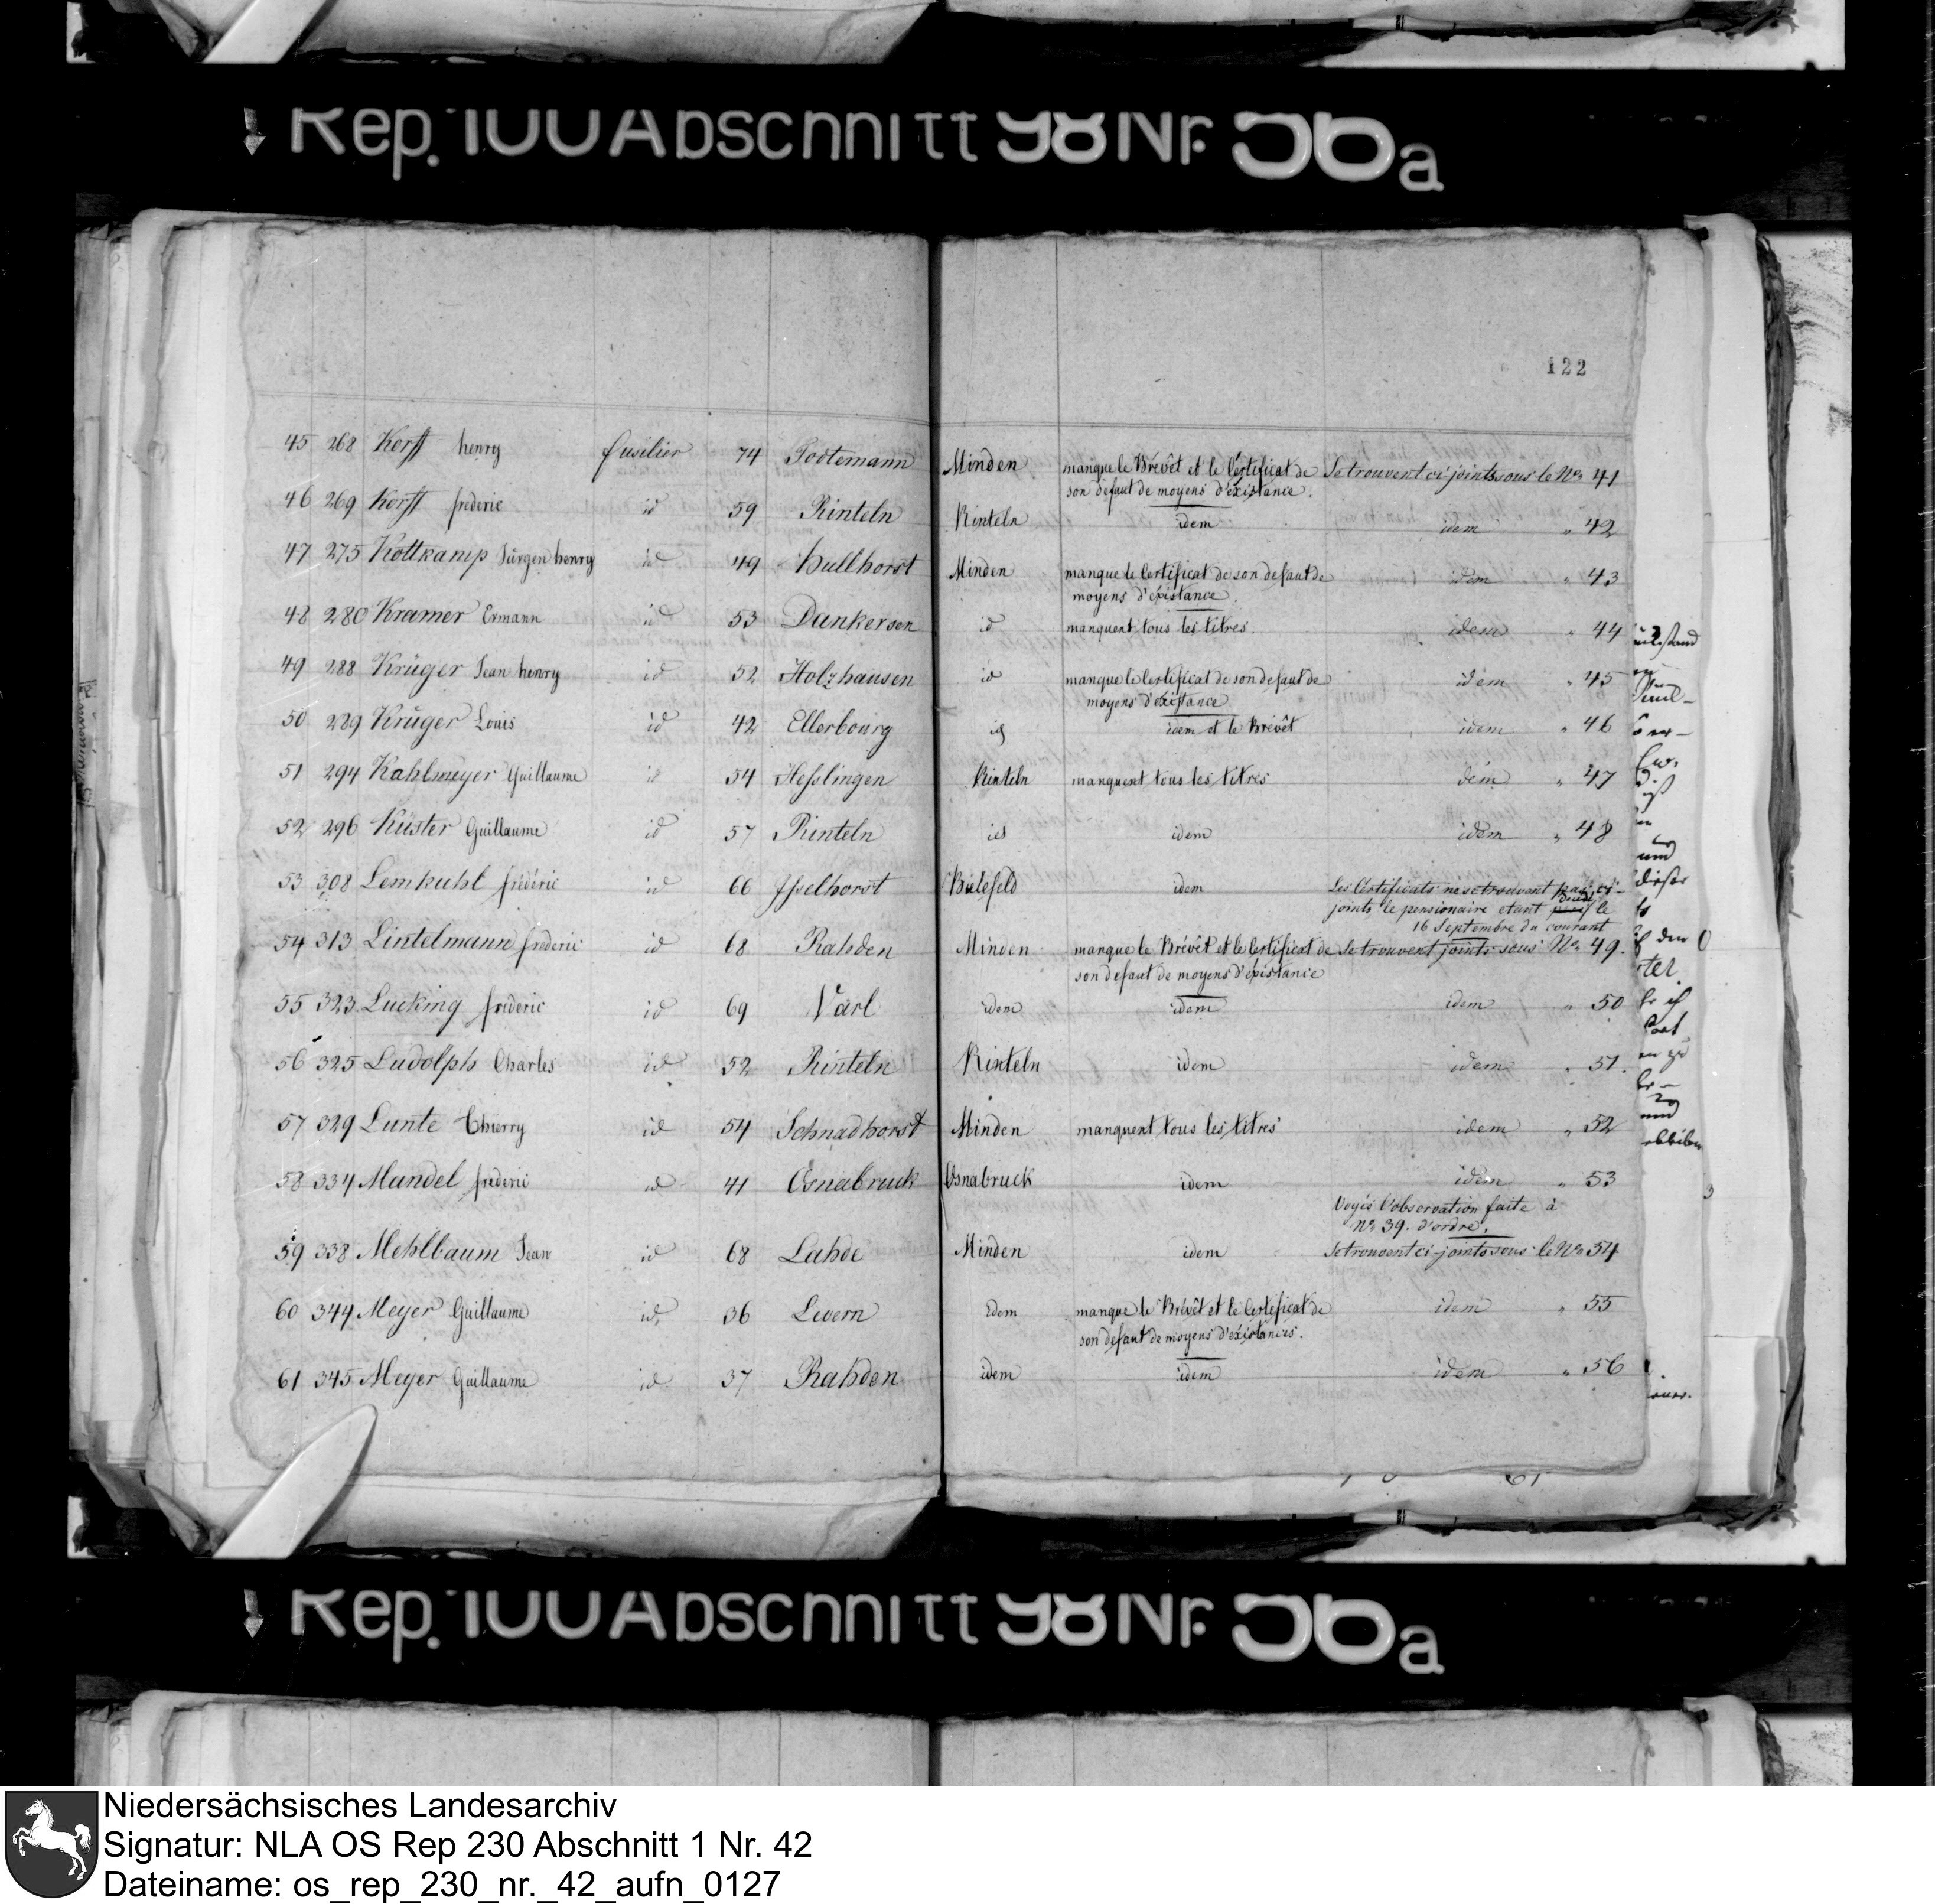 Rep. 100 Abschnitt 98 Nr. 56a
122
45 268 Korff henry fusilier 74 Todtemann Minden manque le Brévêt et le Certificat de Se trouvent ci joints sous le No 41
son defaut de moyens d'éxistance.
46 269 Korff frederic id 59 Rinteln Rinteln idem idem " 42
47 275 Kottkamp Jürgen henry id 49 Hullhorst Minden manque le Certificat de son defaut de idem " 43
moyens d'éxistance.
48 280 Kramer Ermann id 53 Dankersen id manquent tous les titres. idem " 44
49 288 Krüger Jean henry id 52 Holzhausen id manque le Certificat de son defaut de idem " 45
moyens d'éxistance
50 289 Krüger Louis id 42 Ellerbourg id idem et le Brévêt idem " 46
51 294 Kahlmeyer Guillaume id 54 Hesslingen Rinteln manquent tous les titres dem " 47
52 296 Küster Guillaume id 57 Rinteln id idem idem " 48
53 308 Lemkuhl fréderic id 66 Jsselhorst Bielefeld idem Les Certificats ne se trouvent pas ci-
joints le pensionaire etant le
16 Septembre du courant
54 313 Lintelmann frederic id 68 Rahden Minden manque le Brévêt et le Certificat de Se trouvent joints sous No 49.
son defaut de moyens d'éxistance
55 323 Lucking frederic id 69 Varl idem idem idem " 50
56 325 Ludolph Charles id 52 Rinteln Rinteln idem idem " 51.
57 329 Lunte Thierry id 54 Schnadhorst Minden manquent tous les titres idem " 52
58 334 Mandel frederic id 41 Osnabruck Osnabruck idem idem " 53
Voyés l'observation faite à
No 39. d'ordre.
59 338 Mehlbaum Jean id 68 Lahde Minden idem Se trouvent ci-joints sous le No 54
60 344 Meyer Guillaume id 36 Levern idem manque le Brévêt et le Certificat de idem " 55
son defaut de moyens d'éxistances.
61 345 Meyer Guillaume id 37 Rahden idem idem idem " 56
Rep. 100 Abschnitt 98 Nr. 56a
Niedersächsisches Landesarchiv
Signatur: NLA OS Rep 230 Abschnitt 1 Nr. 42
Dateiname: os_rep_230_nr._42_aufn_0127